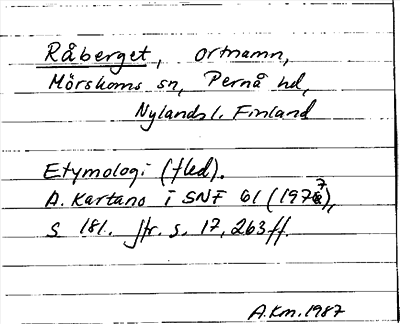 Råberget, ortnamn,
Mörskoms sn, Pernå hd,
Nylands l. Finland
Etymologi (fled).
A. Kartano i SNF 61 (1977),
s 181. Jfr. s. 17, 263ff.
A.Km. 1987